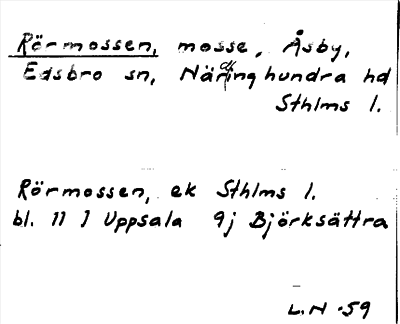 Rörmossen, mosse, Åsby,
Edsbro sn, Närdinghundra hd
Sthlms l.
Rörmossen, ek Sthlms l.
bl. 11 I Uppsala 9j Björksättra
L.N -59